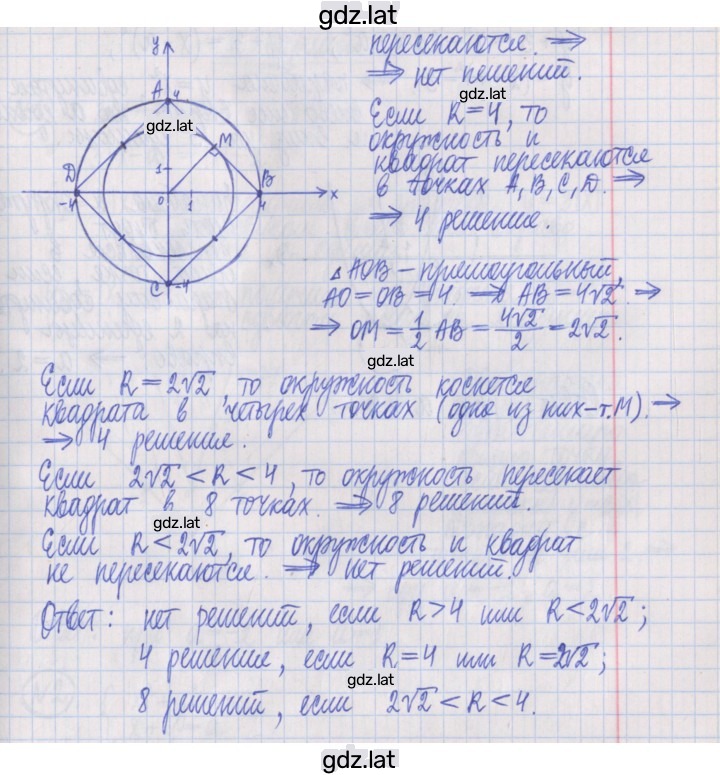 gdz.lat
пересекаются. ⇒
⇒ нет решений.
gdz.lat
Если R=4, то
окружность и
квадрат пересекаются
в точках A, B, C, D. ⇒
⇒ 4 решение.
y
A 4
gdz.lat
M
D
B
1
-4
0
1
4
x
C -4
△AOB – прямоугольный,
AO=OB=4. ⇒ AB=4√2. ⇒
⇒ OM = 1/2 AB = 4√2/2 = 2√2.
gdz.lat
Если R=2√2, то окружность коснется
квадрата в четырех точках (одна из них–т.M). ⇒
⇒ 4 решения.
Если 2√2<R<4, то окружность пересекает
квадрат в 8 точках. ⇒ 8 решений.
gdz.lat
Если R<2√2, то окружность и квадрат
не пересекаются. ⇒ нет решений.
Ответ: нет решений, если R>4 или R<2√2;
4 решения, если R=4 или R=2√2;
8 решений, если 2√2<R<4.
gdz.lat
gdz.lat